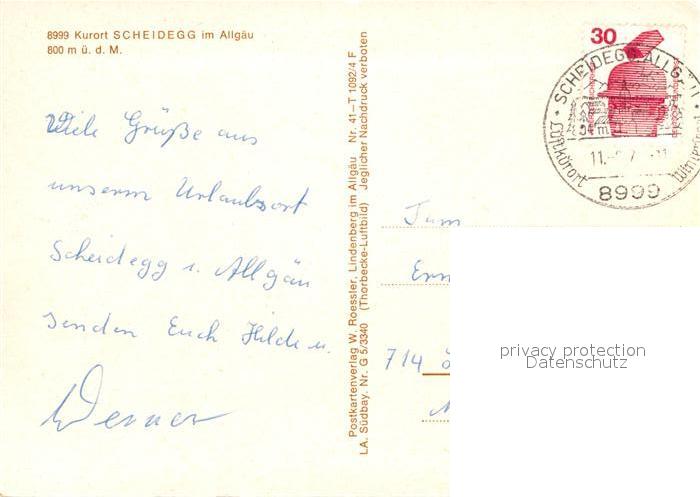 8999 Kurort SCHEIDEGG im Allgäu
800 m ü. d. M.
Viele Grüße aus
unserm Urlaubsort
Scheidegg i. Allgäu
senden Euch Hilde u.
Werner
Postkartenverlag W. Roessler, Lindenberg im Allgäu Nr. 41–T 1092/4 F
LA. Südbay. Nr. G 5/3340 (Thorbecke-Luftbild) Jeglicher Nachdruck verboten
30
SCHEIDEGG, ALLGÄU
Luftkurort
8999
714
privacy protection
Datenschutz